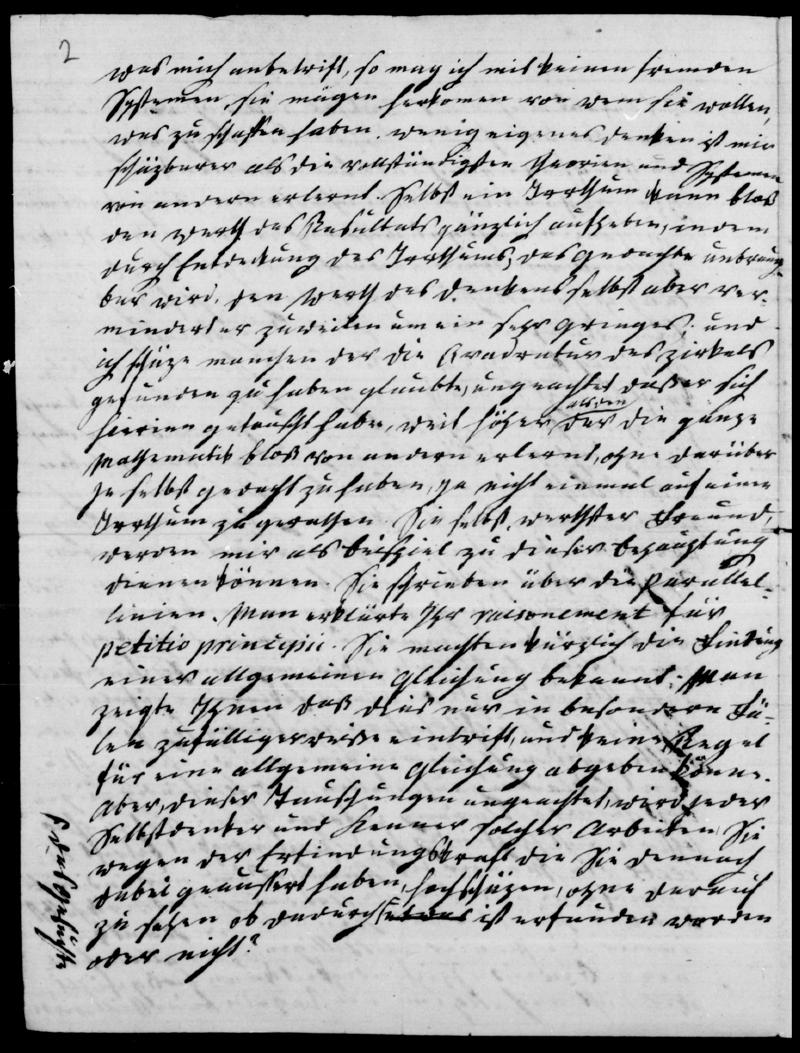 2
was mich anbetrift, so mag ich mit keinen fremden
Systemen, sie mögen herkomen von wem sie wollen,
was zu schaffen haben. wenig eigenes denken ist mir
schäzbarer als die vollständigsten theorien und Systemen
von andern erlernt. Selbst ein Irrthum kann blos
den werth des Resultats gänzlich aufheben, indem
durch Entdekung des Irrthums, das gedachte unbrauch
bar wird, den werth des denkens selbst aber ver-
mindert er zuweilen um ein sehr gringes; und
ich schäze manchen der die Quadratur des Zirkels
gefunden zu haben glaubte, ungeachtet daß er sich
hierinn getäuscht habe, weit höher, als den der die ganze
Mathematik blos von andern erlernt, ohne darüber
je selbst gedacht zu haben, ja nicht einmal auf einen
Irrthum zu gerathen. Sie selbst, werthster Freund,
werden mir als beispiel zu dieser behauptung
dienen können. Sie schrieben über die Parallel-
linien. Man erklärte Ihr raisonement für
petitio principii. Sie machten kürzlich die Findung
einer allgemeinen Gleichung bekannt; Man
zeigte Ihnen daß dies nur in besondern Fä-
len zufälligerweise eintrift, und keine Regel
für eine allgemeine Gleichung abgeben könne.
Aber, dieser Täuschungen ungeachtet, wird jeder
Selbstdenker und Kenner solcher Arbeiten Sie
wegen der Erfindungskraft die Sie dennoch
dabei geäussert haben, hochschäzen, ohne darauf
zu sehen ob dadurch etwas ist erfunden worden
oder nicht?